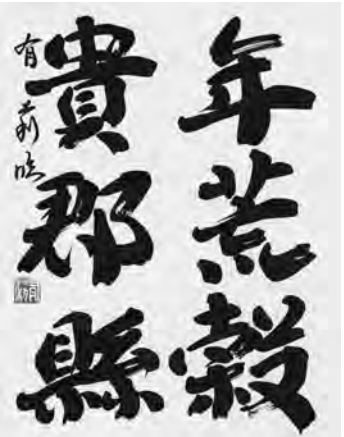 年荒穀
貴郡縣
有莉臨